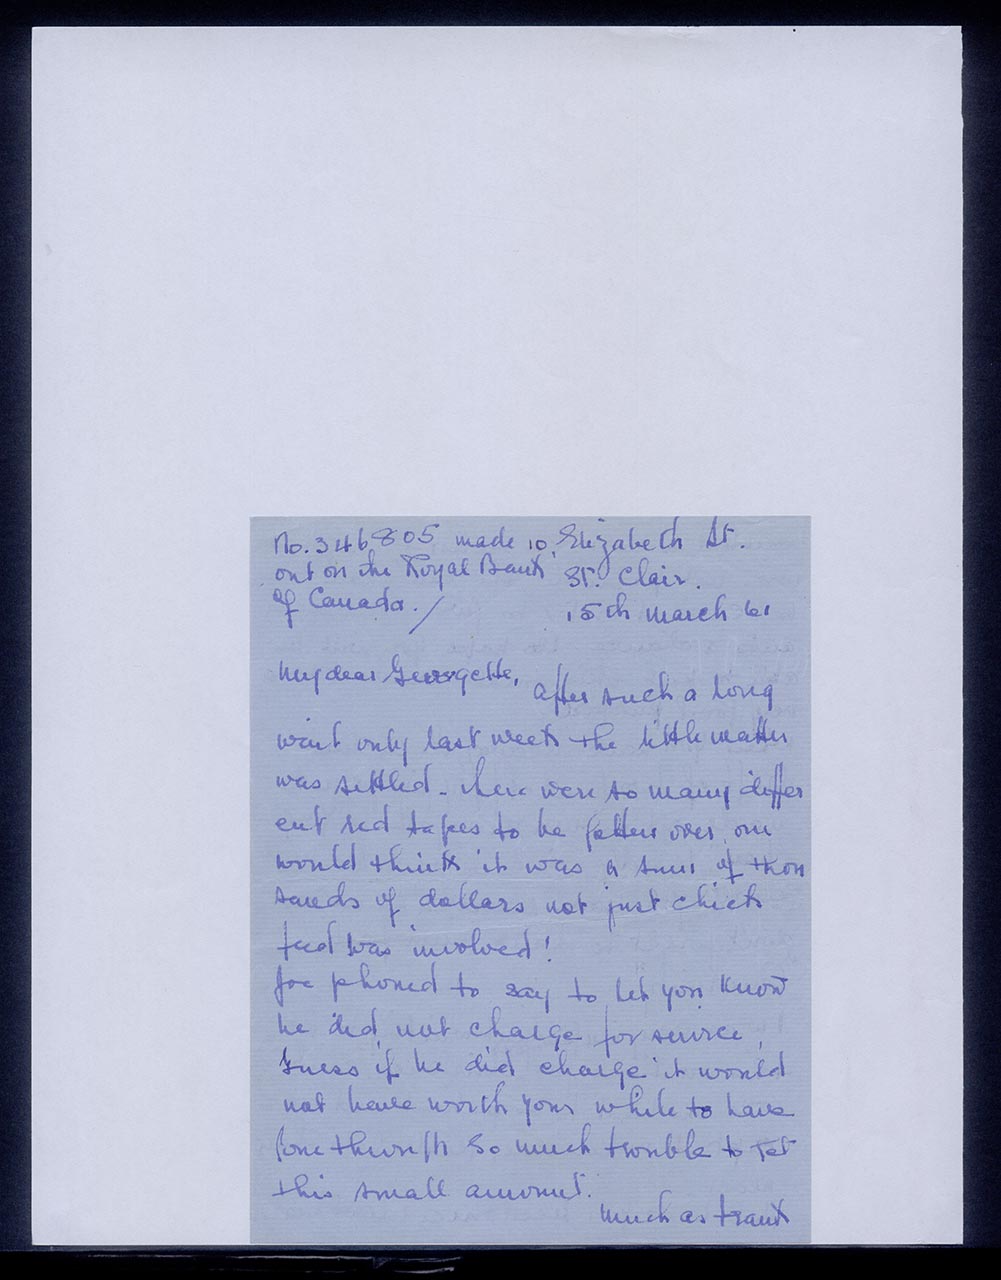 No. 346805 made
out on the Royal Bank
of Canada. /
10, Elizabeth St.
St. Clair.
15th March 61
My dear Georgette,
After such a long
wait only last week the little matter
was settled. There were so many differ
ent red tapes to be gotten over, one
would think it was a sum of thou
sands of dollars not just chick
feed was involved!
Joe phoned to say to let you know
he did not charge for service,
guess if he did charge it would
not have worth your while to have
gone through so much trouble to get
this small amount.
Much as Frank